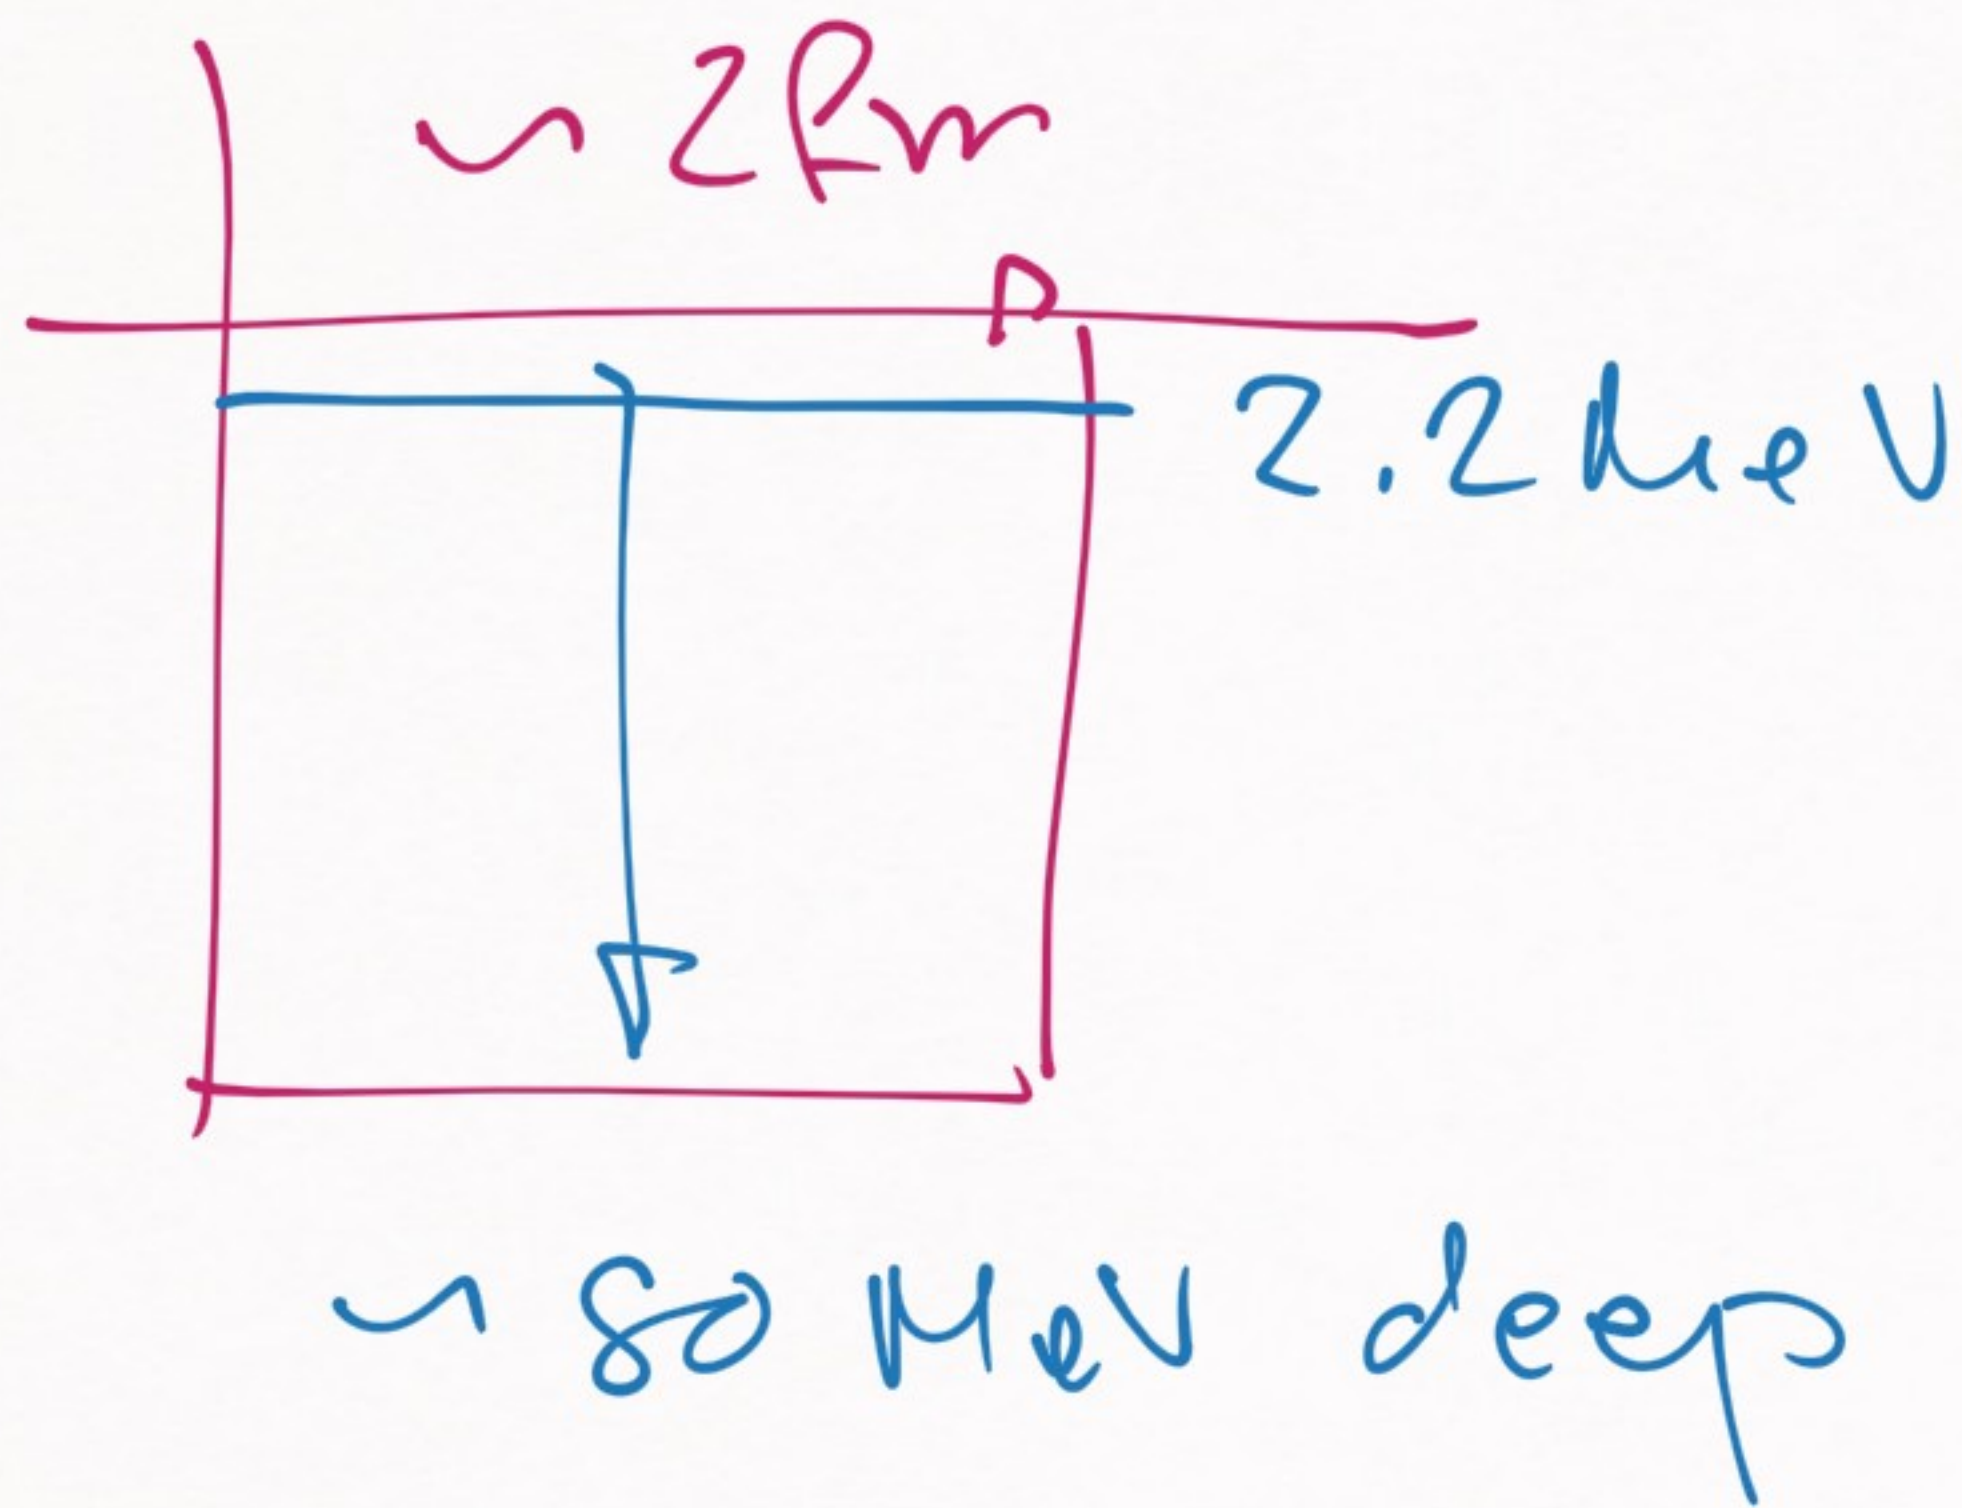 ~ 2fm
2.2 MeV
~ 80 MeV deep